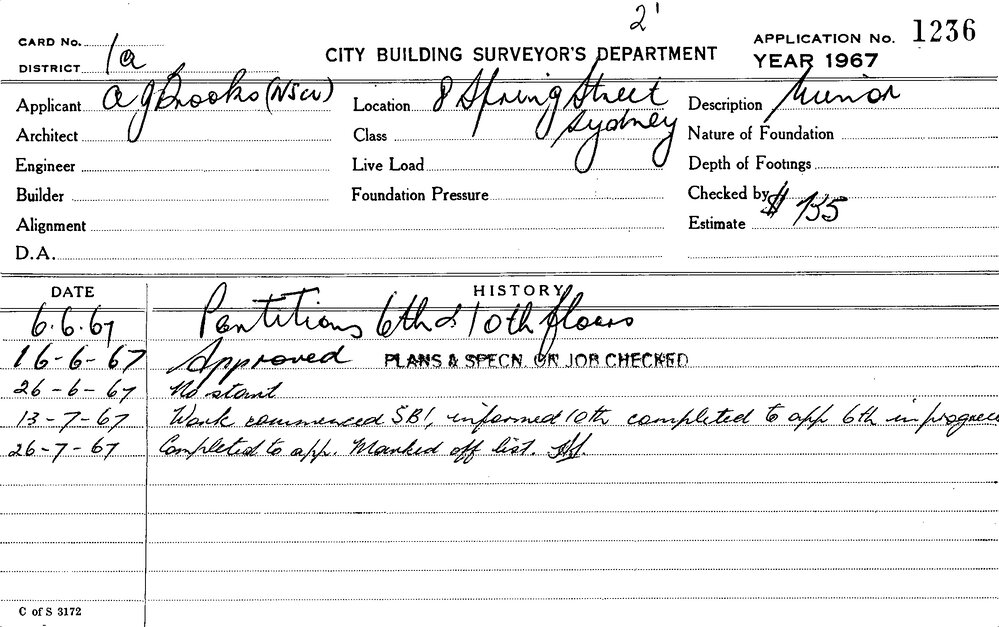 2'
CARD No. 1a
DISTRICT
CITY BUILDING SURVEYOR'S DEPARTMENT
APPLICATION No. 1236
YEAR 1967
Applicant A G Brooks (NSW)
Location 8 Spring Street
Sydney
Description Minor
Architect
Class
Nature of Foundation
Engineer
Live Load
Depth of Footings
Builder
Foundation Pressure
Checked by
Alignment
Estimate $ 735
D.A.
DATE HISTORY
6.6.67 Partitions 6th & 10th floors
16-6-67 Approved PLANS & SPECN. OR JOB CHECKED
26-6-67 No start
13-7-67 Work commenced SB1, informed 10th completed to app 6th in progress
26-7-67 Completed to app. Marked off list.
C of S 3172